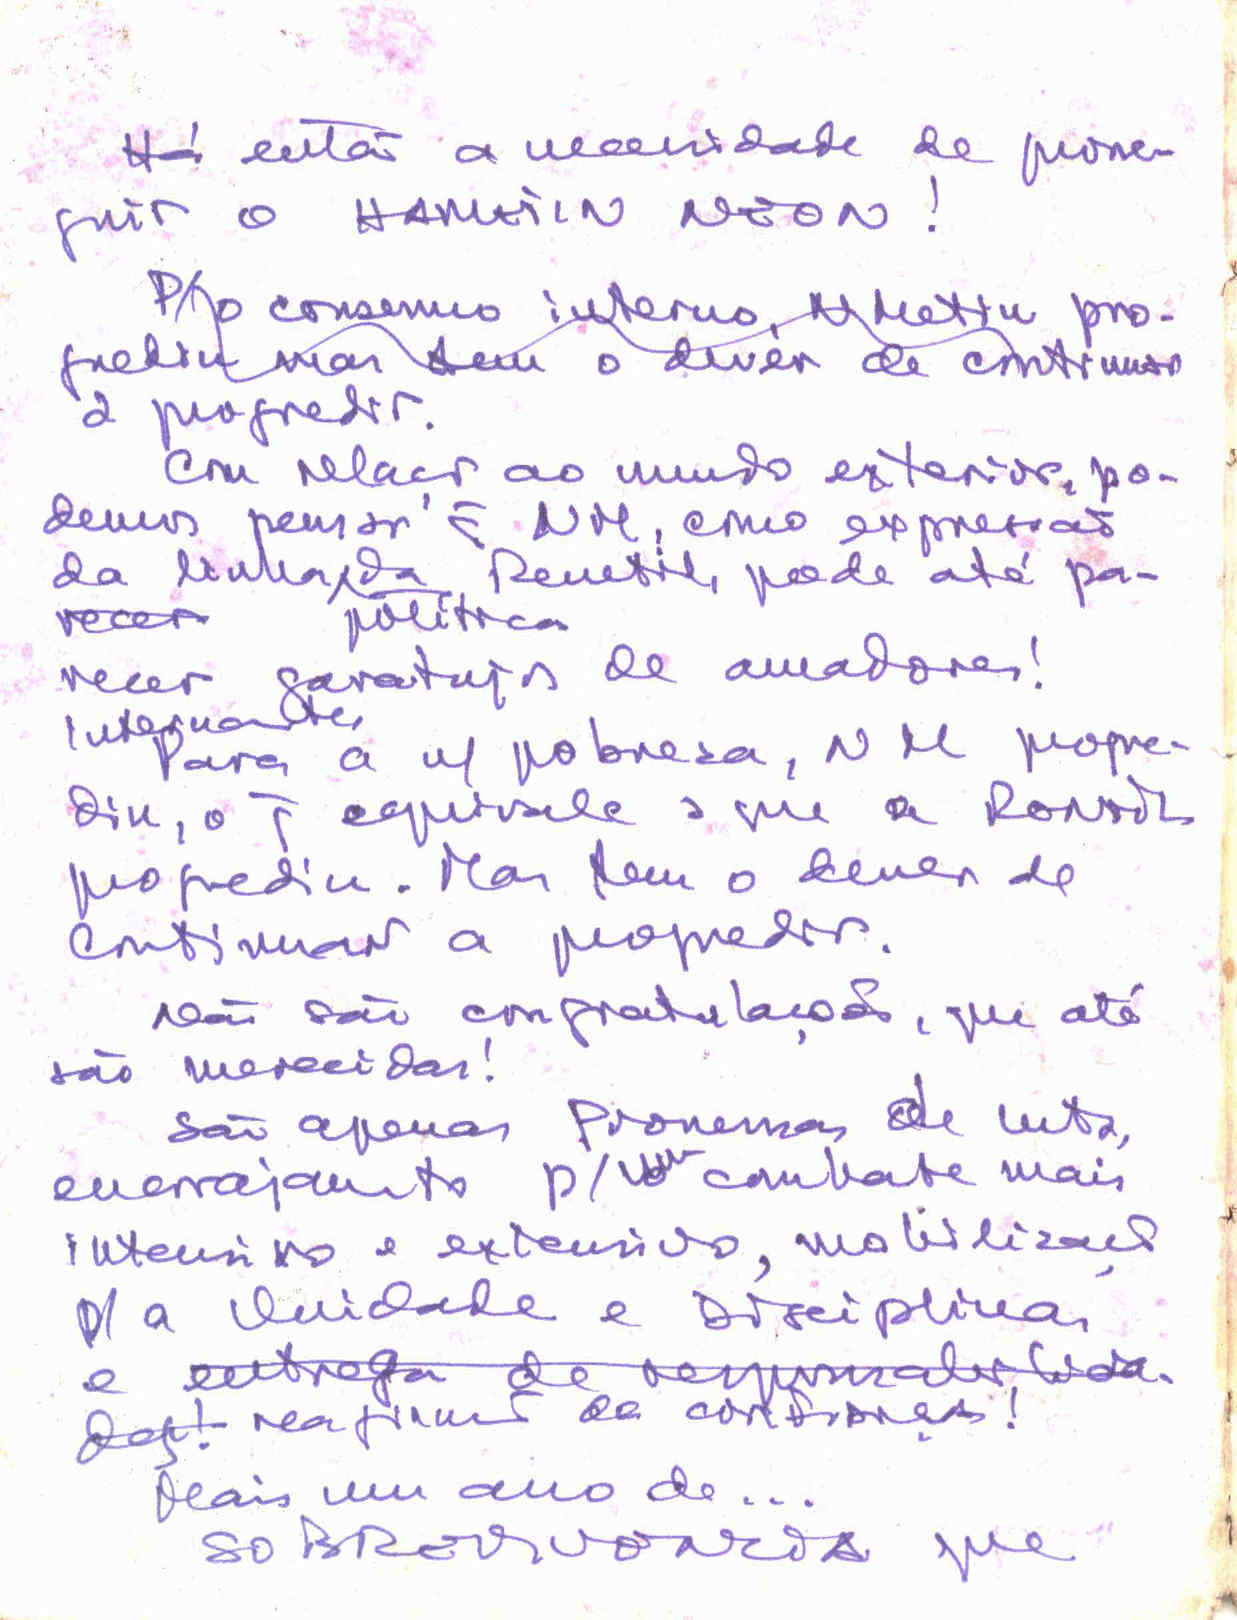 Há então a necessidade de prosse-
guir o HAMETIN NEON!
P/o consenso interno, N Metin pro-
grediu mas tem o dever de continuar
a progredir.
Com relação ao mundo exterior, po-
demos pensar q̄ NM, como expressão
da linha da Renetil, pode até pa-
recer política
recer garatujos de amadores!
Internamente,
Para a n/ pobreza, NM progre-
diu, o q̄ equivale a que a Renetil
progrediu. Mas tem o dever de
continuar a progredir.
Não são congratulações, que até
são merecidas!
São apenas Promessas de luta,
encorajamento p/ um combate mais
intensivo e extensivo, mobilização
p/ a Unidade e Disciplina,
e entrega de responsabilida-
des! reafirmação de confiança!
Mais um ano de...
SOBREVIVÊNCIA que